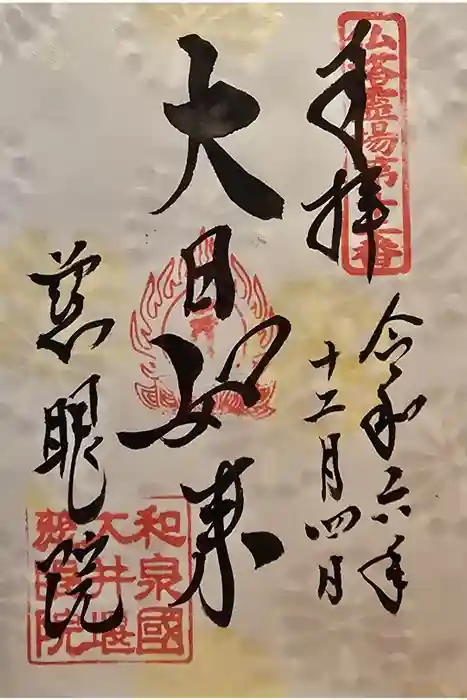 奉拝
仏塔霊場第十二番
令和六年
十二月四日
大日如来
慈眼院
和泉國
大井堰
慈眼院